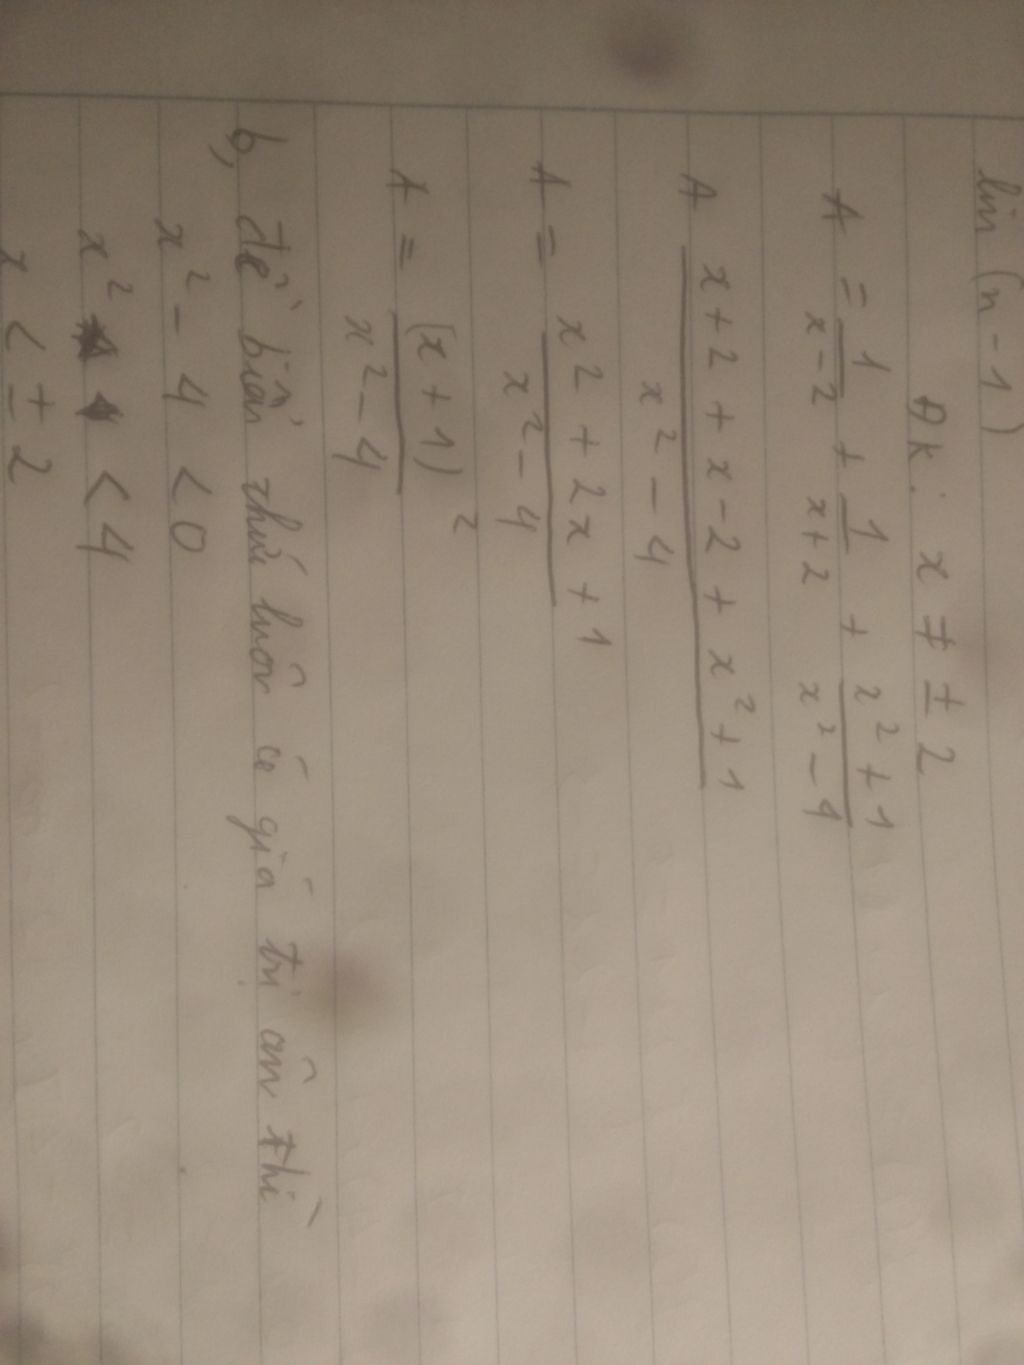 (n-1)
ĐK: x ≠ ± 2
A = 1/(x-2) + 1/(x+2) + (x² + 1)/(x² - 4)
A (x+2 + x-2 + x² + 1)/(x² - 4)
A = (x² + 2x + 1)/(x² - 4)
A = (x + 1)²/(x² - 4)
b, để biến thức luôn có giá trị âm thì
x² - 4 < 0
x² < 4
x < ± 2